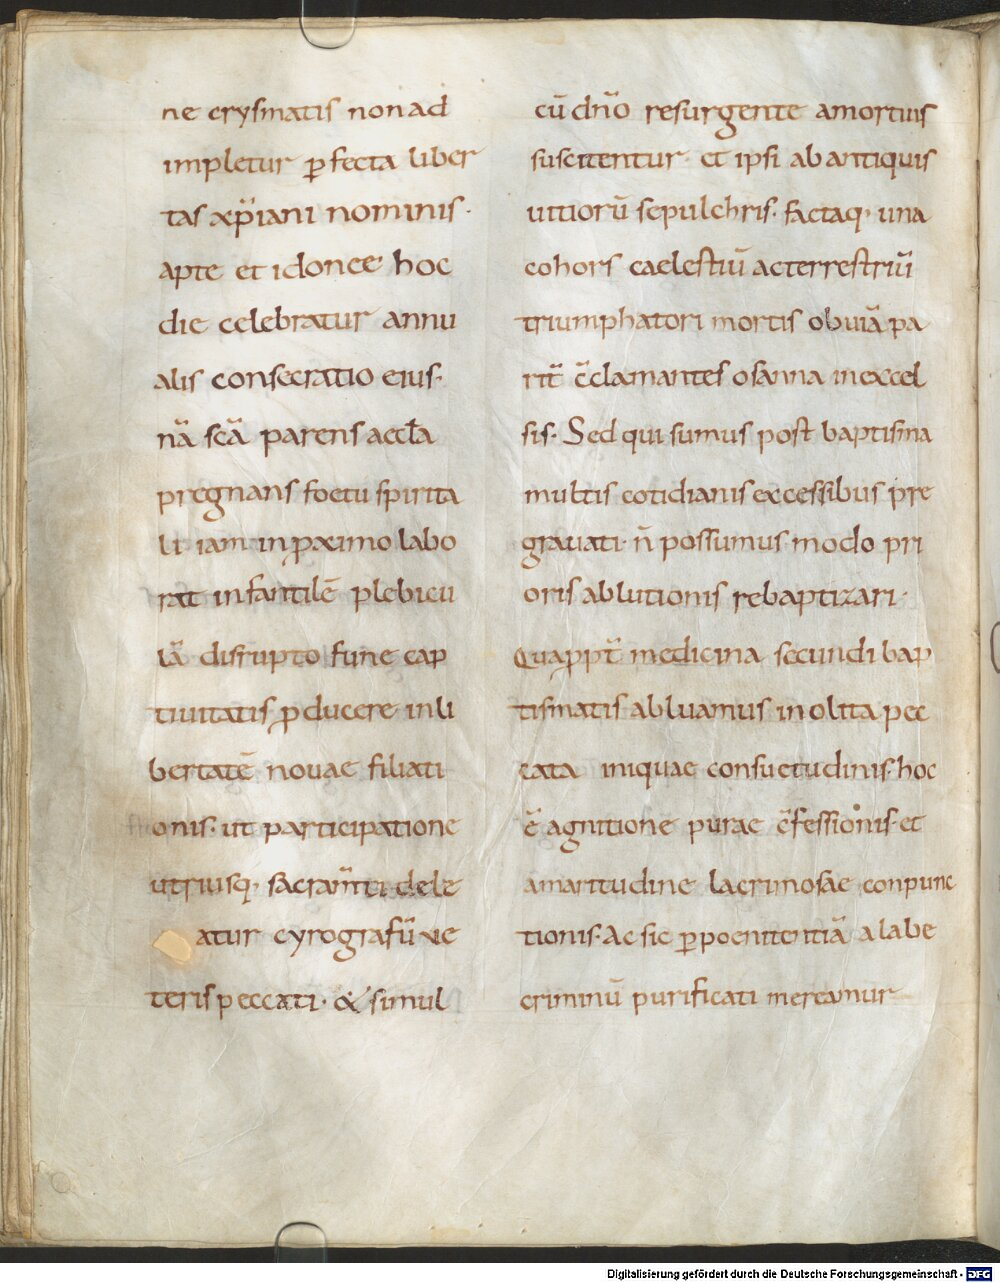 ne crysmatis non ad
impletur ꝑfecta liber
tas xp̄iani nominis·
apte et idonee hoc
die celebratur annu
alis consecratio eius·
nā scā parens aeccła
pregnans foetu spirita
li iam in ꝓximo labo
rat infantilē plebicu
lā disrupto fune cap
tiuitatis ꝓducere in li
bertatē nouae filiati
onis· ut participatione
utriusq; sacram̄ti dele
atur cyrografū ve
teris peccati· & simul
cū dn̄o resurgente a mortuis
suscitentur· et ipsi ab antiquis
uitiorū sepulchris· factaq; una
cohors caelestiū ac terrestriū
triumphatori mortis obuiā pa
rit̄ c̄clamantes osanna in excel
sis· Sed qui sumus post baptisma
multis cotidianis excessibus pre
grauati· n̄ possumus modo pri
oris ablutionis rebaptizari·
Quaꝓpt̄ medicina secundi bap
tismatis abluamus inolita pec
cata iniquae consuetudinis· hoc
ē agnitione purae c̄fessionis· et
amaritudine lacrimosae conpunc
tionis· Ac sic ꝑ poenitentiā a labe
criminū purificati mereamur
Digitalisierung gefördert durch die Deutsche Forschungsgemeinschaft - DFG